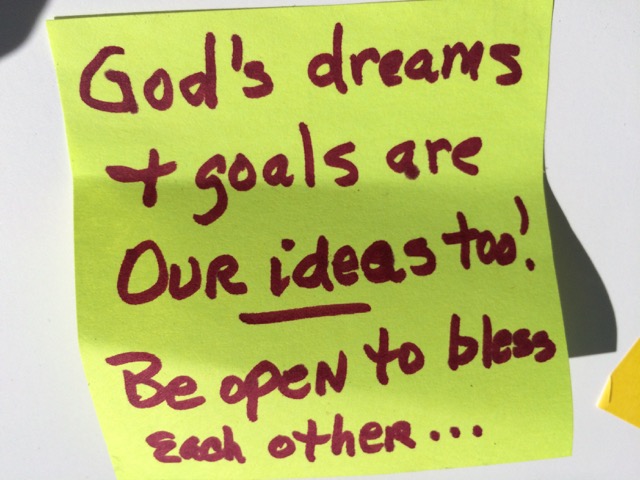 God's dreams
+ goals are
OUR ideas too!
Be open to bless
each other...